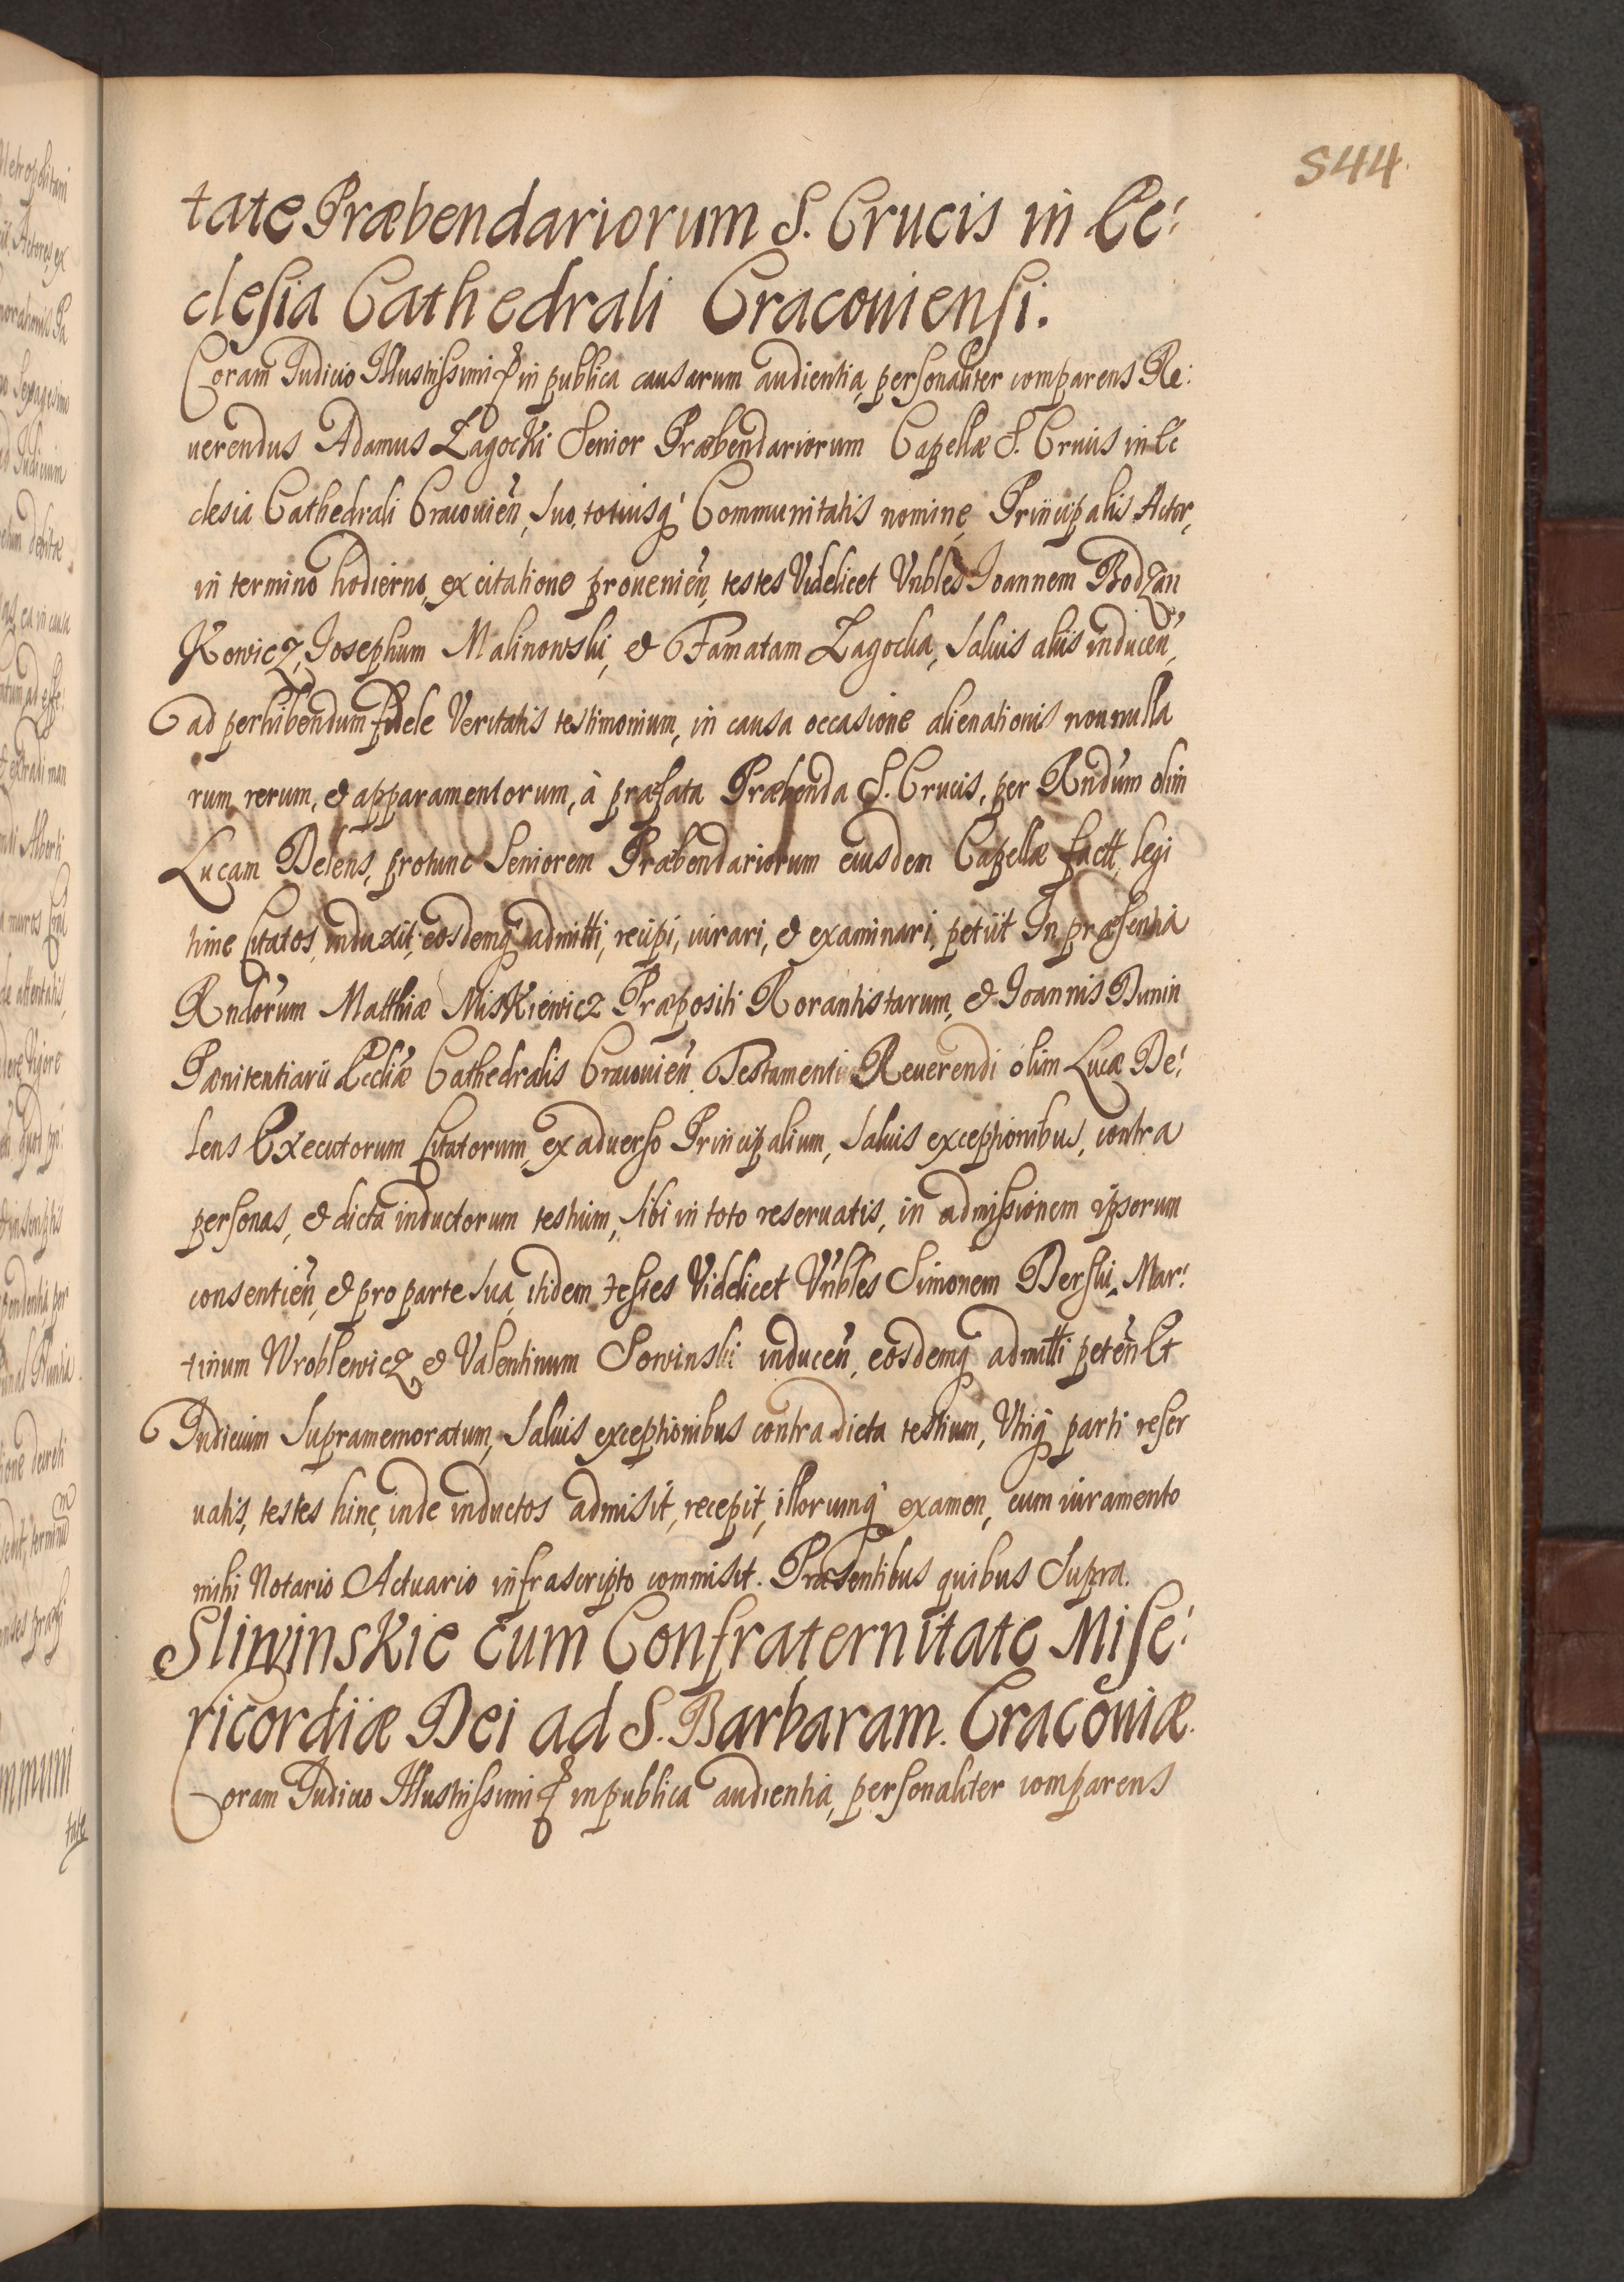 544
tate Præbendariorum S. Crucis in Ec:
clesia Cathedrali Cracoviensi.
Coram Iudicio Illustrissimi & in publica causarum audientia, personaliter comparens Re:
uerendus Adamus Zagocki Senior Præbendariorum Capellæ S. Crucis in Ec
clesia Cathedrali Cracouien̄, suo, totiusq' Communitatis nomine, Principalis Actor,
in termino hodierno, ex citatione prouenien̄, testes Videlicet Vnbles Ioannem Bodzan
Kowicz, Iosephum Malinowski, & Famatam Zagocka, saluis aliis inducen̄,
ad perhibendum fidele Veritatis testimonium, in causa occasione alienationis nonnulla
rum rerum, & apparamentorum, à præfata Præbenda S. Crucis, per Rndum olim
Lucam Delens, protunc Seniorem Præbendariorum eiusdem Capellæ factt, legi
time Citatos, induxit, eosdemq' admitti, recipi, iurari, & examinari, petiit In præsentia
Rndorum Matthiæ MisKiewicz Præpositi Rorantistarum, & Ioannis Dunin
Pænitentiarii Eccliæ Cathedralis Cracouien̄ Testamenti Reuerendi olim Lucæ De:
lens Executorum Citatorum, ex aduerso Principalium, saluis exceptionibus, contra
personas, & dicta inductorum testium, sibi in toto reseruatis, in admissionem ipsorum
consentien̄, & pro parte sua, itidem testes Videlicet Vnbles Simonem Derski, Mar:
tinum Wroblewicz, & Valentinum Sowinski inducen̄, eosdemq' admitti peten̄ Et
Iudicium supramemoratum, saluis exceptionibus contra dicta testium, Vtriq' parti reser
uatis, testes hinc, inde inductos admisit, recepit, illorumq' examen, cum iuramento
mihi Notario Actuario infrascripto commisit. Præsentibus quibus Supra.
SliwinsKie cum Confraternitate Mise:
ricordiæ Dei ad S. Barbaram. Cracouiæ.
Coram Iudicio Illustrissimi & in publica audientia, personaliter comparens